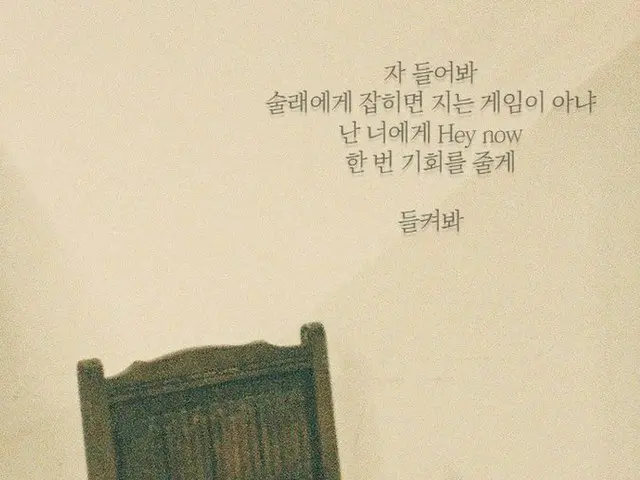 자 들어봐
술래에게 잡히면 지는 게임이 아냐
난 너에게 Hey now
한 번 기회를 줄게
들켜봐